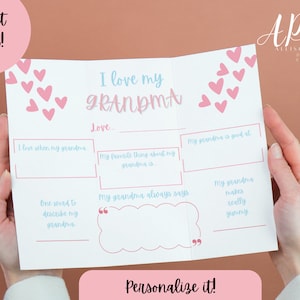 I love my
GRANDMA
Love..
I love when my grandma
My favorite thing about my
grandma is...
My grandma is good at
One word to
describe my
grandma
My grandma always says
My grandma
makes
really
yummy
Personalize it!